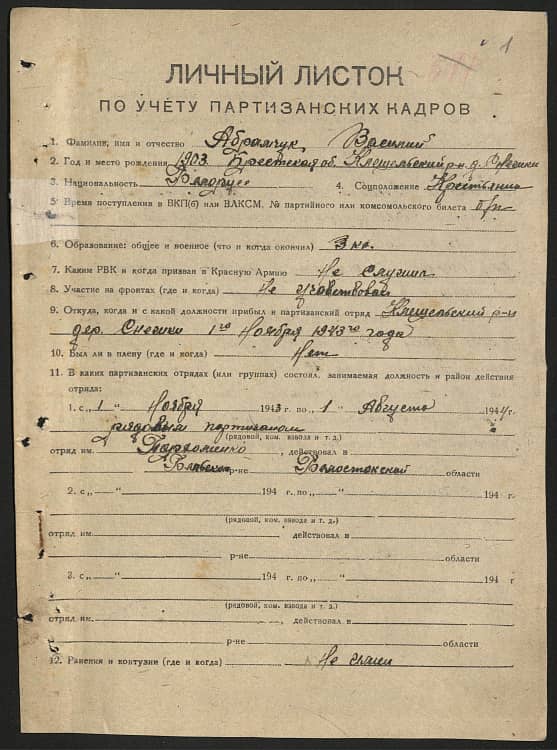 1
ЛИЧНЫЙ ЛИСТОК
ПО УЧЁТУ ПАРТИЗАНСКИХ КАДРОВ
1. Фамилия, имя и отчество Абрамчук Василий
2. Год и место рождения 1903 Брестская об. Клещельский р-н д.
3. Национальность Беларус 4. Соцположение Крестьянин
5. Время поступления в ВКП(б) или ВЛКСМ, № партийного или комсомольского билета б/п
6. Образование: общее и военное (что и когда окончил) 3 кл.
7. Каким РВК и когда призван в Красную Армию Не служил
8. Участие на фронтах (где и когда) Не участвовал
9. Откуда, когда и с какой должности прибыл в партизанский отряд Клещельский р-н
дер. Снежки 1го Ноября 1943го года
10. Был ли в плену (где и когда) Нет
11. В каких партизанских отрядах (или группах) состоял, занимаемая должность и район действия
отряда:
1. с „1“ Ноября 1943 г. по „1“ Августа 1944 г.
рядовым партизаном
(рядовой, ком. взвода и т. д.)
отряд им. Пархоменко, действовал в
Бельском р-не Белостокской области
2. с „ “ 194 г. по „ “ 194 г.
(рядовой, ком. взвода и т. д.)
отряд им. действовал в
р-не области
3. с „ “ 194 г. по „ “ 194 г
(рядовой, ком. взвода и т. д.)
отряд им. , действовал в
р-не области
12. Ранения и контузии (где и когда) Не имел